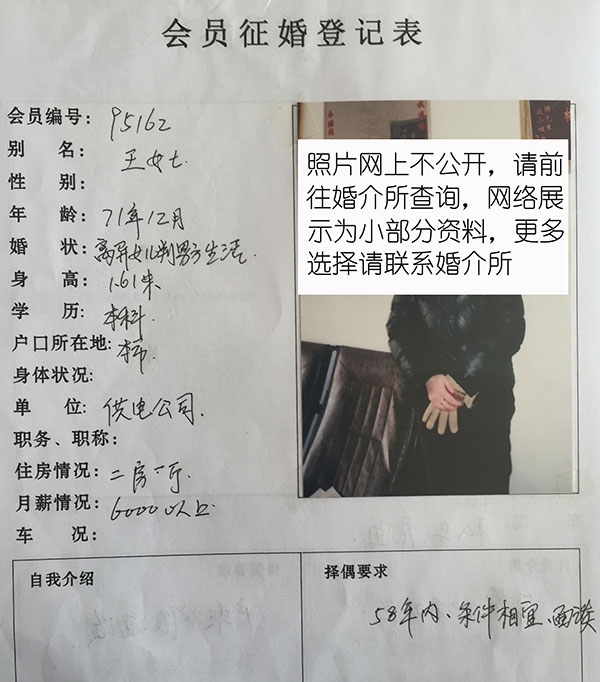 会员征婚登记表
会员编号: 95162
别 名: 王女士.
性 别:
年 龄: 71年12月
婚 状: 离异女儿判男方生活.
身 高: 1.61米
学 历: 本科.
户口所在地: 本市.
身体状况:
单 位: 供电公司.
职务、职称:
住房情况: 二房一厅.
月薪情况: 6000以上
车 况:
照片网上不公开，请前
往婚介所查询，网络展
示为小部分资料，更多
选择请联系婚介所
自我介绍
择偶要求
58年内、条件相宜、面谈